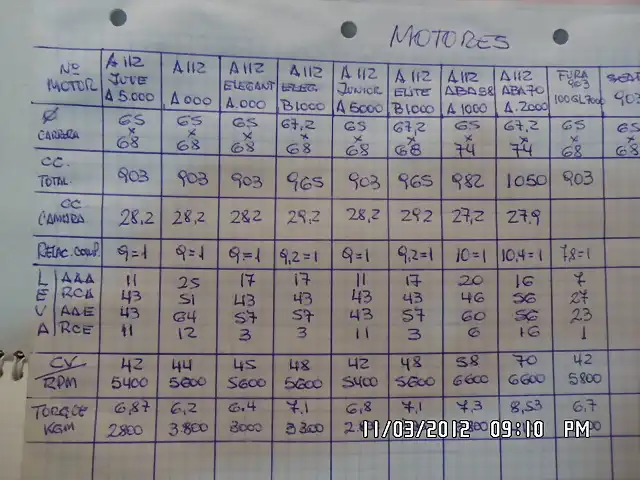 MOTORES
Nº MOTOR | A112 JUVE A5.000 | A112 A000 | A112 ELEGANT A.000 | A112 ELEG. B1000 | A112 JUNIOR A5000 | A112 ELITE B1000 | A112 ABA58 A1000 | A112 ABA70 A.2000 | FURA 903 100GL7000 | 903
Ø x CARRERA | 65 x 68 | 65 x 68 | 65 x 68 | 67,2 x 68 | 65 x 68 | 67,2 x 68 | 65 x 74 | 67,2 x 74 | 65 x 68 | 65 68
CC. TOTAL | 903 | 903 | 903 | 965 | 903 | 965 | 982 | 1050 | 903
CC CAMARA | 28,2 | 28,2 | 282 | 29,2 | 28,2 | 292 | 27,2 | 27,9
RELAC. COMP. | 9=1 | 9=1 | 9=1 | 9,2=1 | 9=1 | 9,2=1 | 10=1 | 10,4=1 | 7,8=1
L | AAA | 11 | 25 | 17 | 17 | 11 | 17 | 20 | 16 | 7
E | RCA | 43 | 51 | 43 | 43 | 43 | 43 | 46 | 56 | 27
V | AAE | 43 | 64 | 57 | 57 | 43 | 57 | 60 | 56 | 23
A | RCE | 11 | 12 | 3 | 3 | 11 | 3 | 6 | 16 | 1
CV | 42 | 44 | 45 | 48 | 42 | 48 | 58 | 70 | 42
RPM | 5400 | 5600 | 5600 | 5600 | 5400 | 5600 | 6600 | 6600 | 5800
TORQUE | 6,87 | 6,2 | 6.4 | 7,1 | 6,8 | 7,1 | 7,3 | 8,53 | 6,7
KGM | 2800 | 3.800 | 3000 | 3300
11/03/2012 09:10 PM